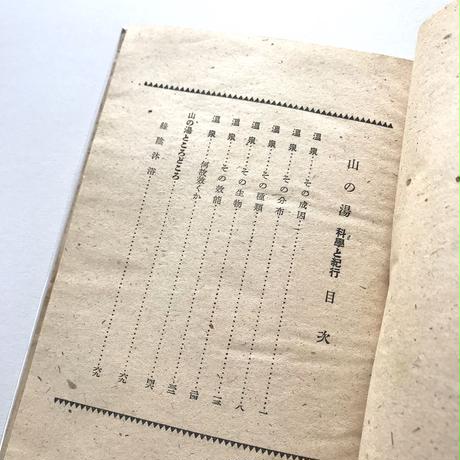 山の湯 科學と紀行 目次
溫泉……その成因……一
溫泉……その分布……八
溫泉……その種類……一三
溫泉……その生物……二四
溫泉……その效能……三三
溫泉……何故效くか……四六
山の湯ところどころ……六九
綠蔭沐浴……六九